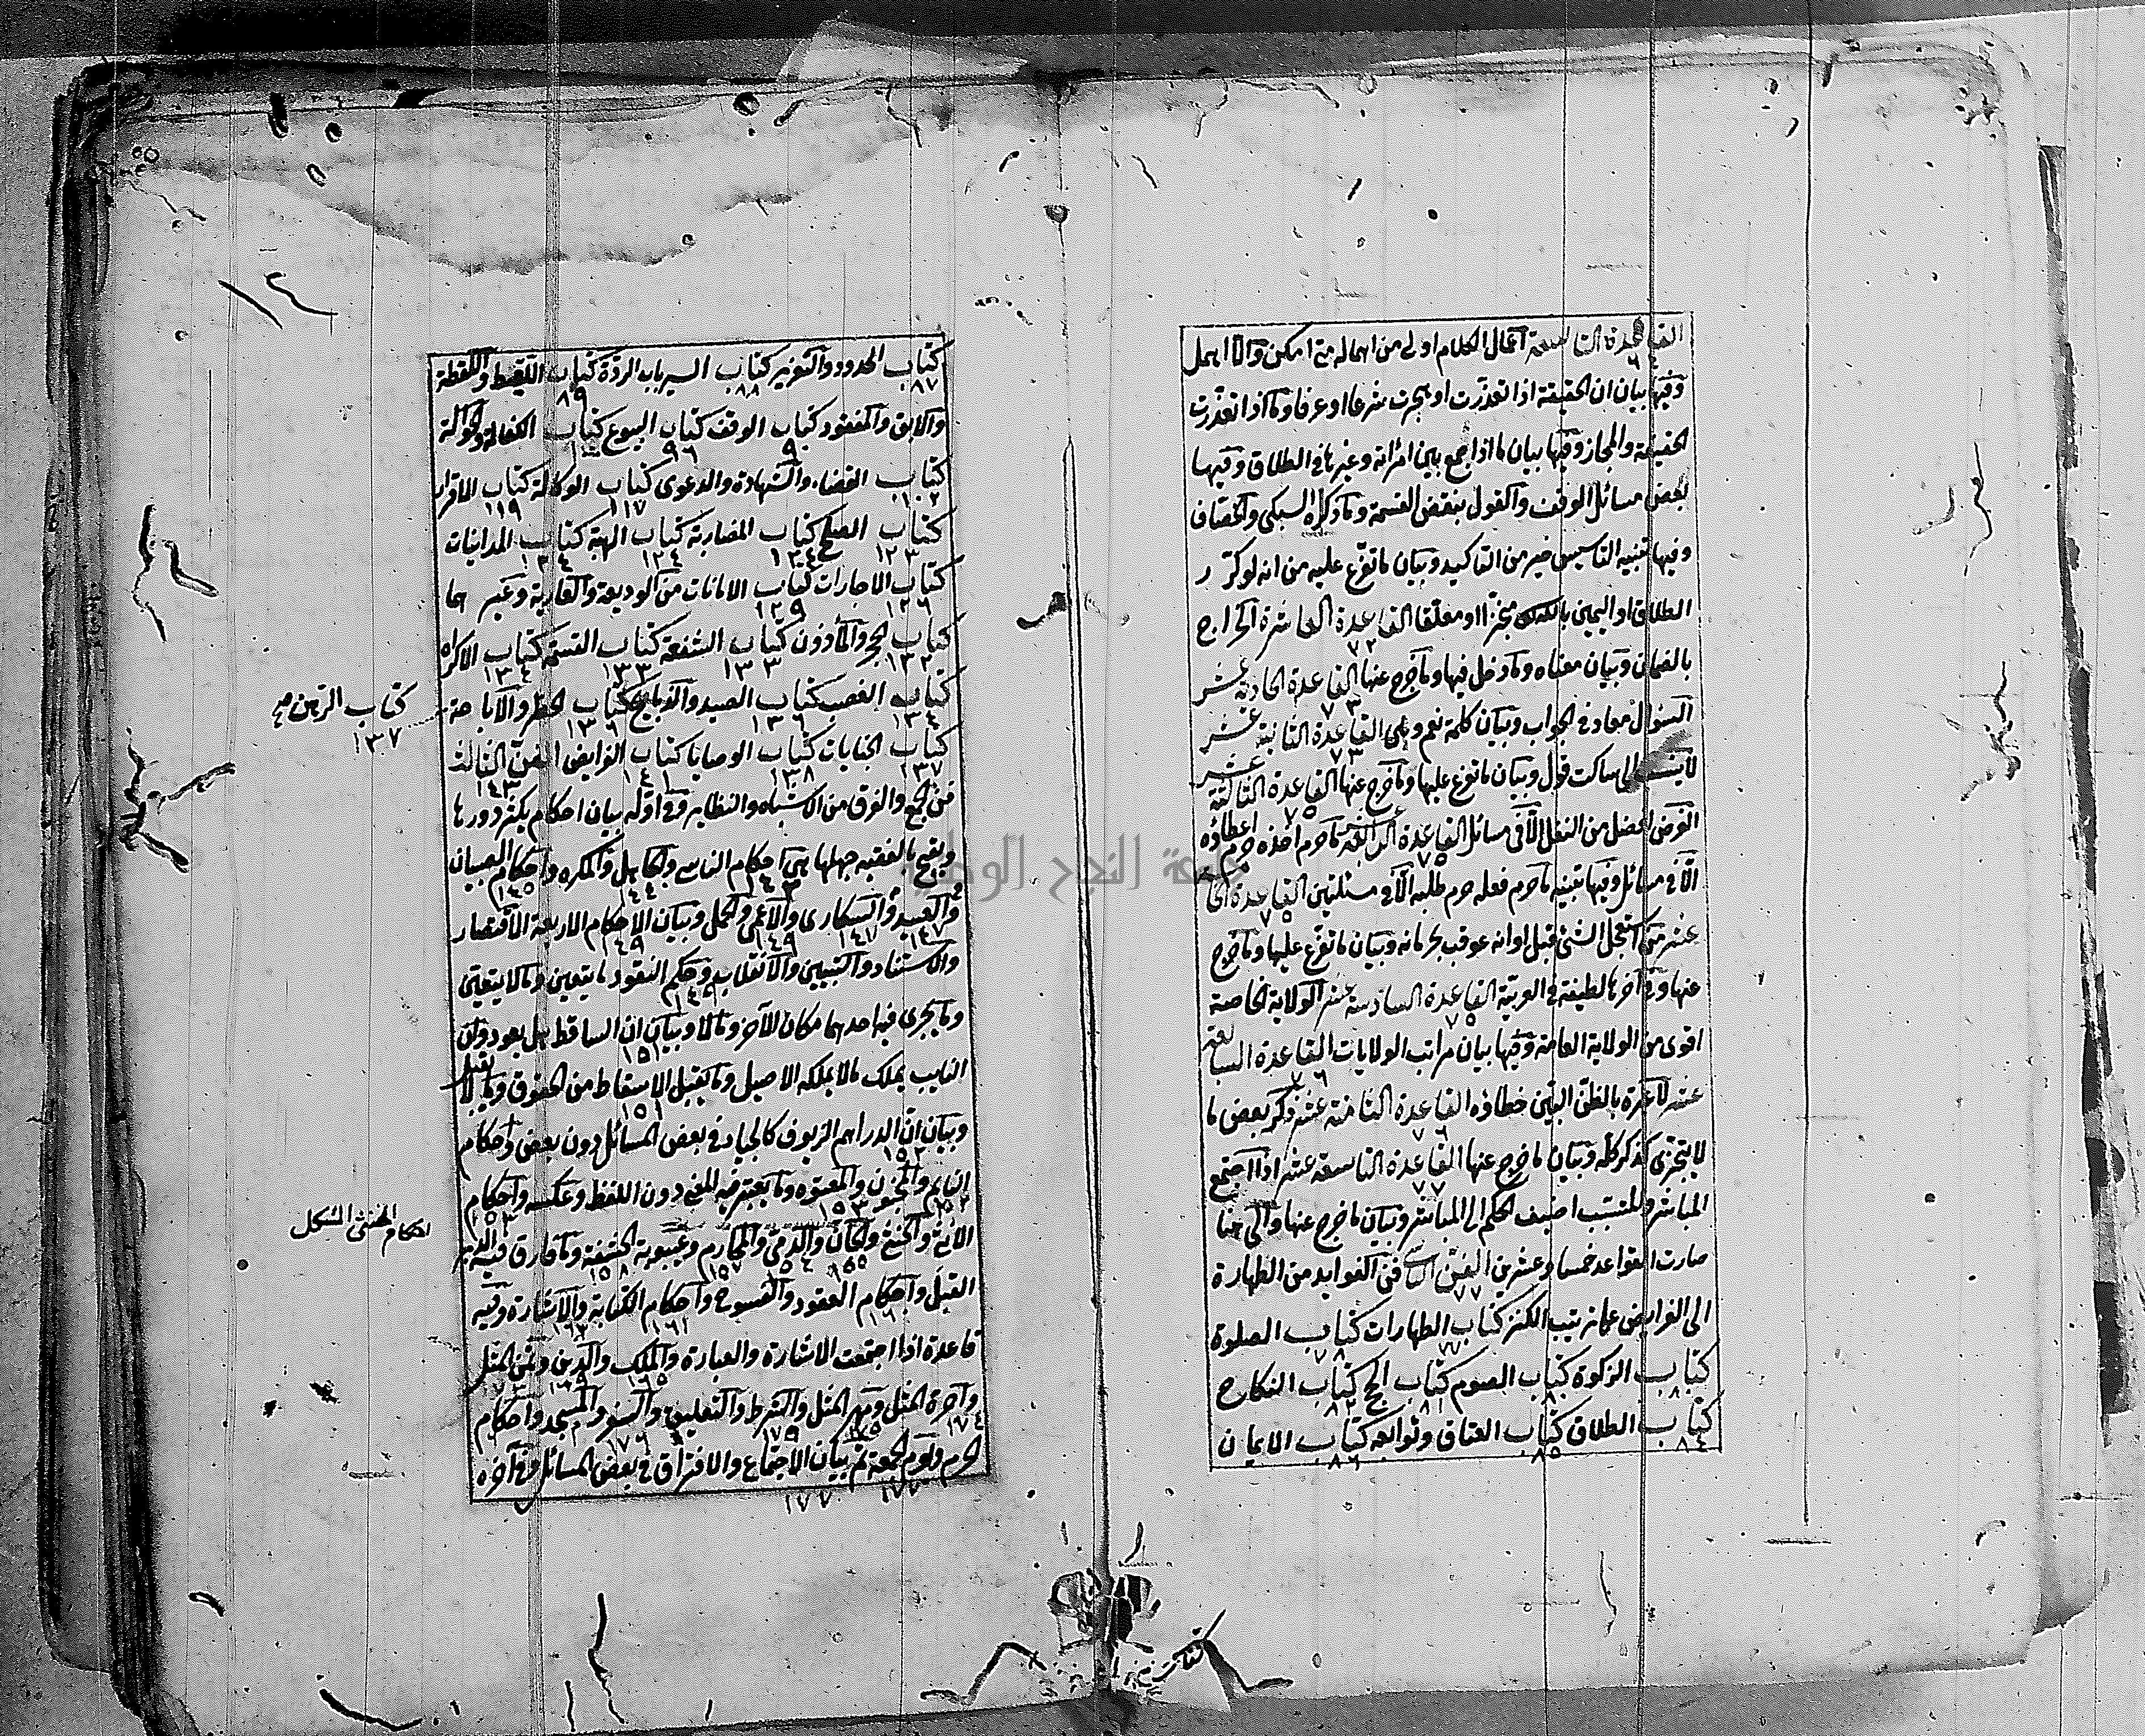 القاعدة التاسعة اعمال الكلام اولى من اهماله متى امكن والا اهمل
٦
وفيها بيان ان الحقيقة اذا تعذرت او هجرت شرعا او عرفا وما اذا تعذرت
الحقيقة والمجاز وفيها بيان ما اذا جمع بين امرأته وغيرها في الطلاق وفيها
بعض مسائل الوقف والقول بنقض القسمة وما ذكره السبكي والخصاف
وفيها تنبيه التاسيس خير من التاكيد وبيان ما تفرع عليه من انه لو كرر
الطلاق او اليمين بالله منجزا او معلقا القاعدة العاشرة الخراج
٧٢
بالضمان وبيان معناه وما دخل فيها وما خرج عنها القاعدة الحادية عشر
٧٣
السؤال معاد في الجواب وبيان كلمة نعم وبلى القاعدة الثانية عشر
٧٣
لا ينسب الى ساكت قول وبيان ما تفرع عليها وما خرج عنها القاعدة الثالثة عشر
٧٥
الفرض افضل من النفل الا في مسائل القاعدة الرابعة عشر ما حرم اخذه حرم اعطاؤه
٧٥
الا في مسائل وفيها تنبيه ما حرم فعله حرم طلبه الا في مسئلتين القاعدة
٧٥
عشر من استعجل الشئ قبل اوانه عوقب بحرمانه وبيان ما تفرع عليها وما خرج
عنها وفي آخرها لطيفة في العربية القاعدة السادسة عشر الولاية الخاصة
٧٥
اقوى من الولاية العامة وفيها بيان مراتب الولايات القاعدة السابعة
٧٦
عشر لا عبرة بالظن البين خطاؤه القاعدة الثامنة عشر ذكر بعض ما
٧٦
لا يتجزى كذكر كله وبيان ما خرج عنها القاعدة التاسعة عشر اذا اجتمع
٧٧
المباشر والمتسبب اضيف الحكم الى المباشر وبيان ما خرج عنها والى هنا
صارت القواعد خمسا وعشرين الفن الثاني فن الفوايد من الطهارة
٧٧
الى الفرايض على ترتيب الكنز كتاب الطهارات كتاب الصلوة
٧٧ ٧٨
كتاب الزكوة كتاب الصوم كتاب الحج كتاب النكاح
٨٠ ٨٠ ٨١ ٨٢
كتاب الطلاق كتاب العتاق وتوابعه كتاب الايمان
٨٤ ٨٥ ٨٦
كتاب الحدود والتعزير كتاب السير باب الردة كتاب اللقيط واللقطة
٨٧ ٨٨ ٨٩
والآبق والمفقود كتاب الوقف كتاب البيوع كتاب الكفالة والحوالة
٩٠ ٩٦
كتاب القضاء والشهادة والدعوى كتاب الوكالة كتاب الاقرار
١٠٢ ١١٧ ١١٩
كتاب الصلح كتاب المضاربة كتاب الهبة كتاب المداينات
١٢٣ ١٢٤ ١٢٤ ١٢٤
كتاب الاجارات كتاب الامانات من الوديعة والعارية وغيرهما
١٢٦ ١٢٩
كتاب الحجر والمأذون كتاب الشفعة كتاب القسمة كتاب الاكراه
١٣٢ ١٣٣ ١٣٣ ١٣٤
كتاب الغصب كتاب الصيد والذبايح كتاب الحظر والاباحة
١٣٤ ١٣٦ ١٣٦
كتاب الرهن صح
١٣٧
كتاب الجنايات كتاب الوصايا كتاب الفرايض الفن الثالث
١٣٧ ١٣٨ ١٤١ ١٤٣
فن الجمع والفرق من الاشباه والنظاير وفي اوله بيان احكام يكثر دورها
ويقبح بالفقيه جهلها هي احكام الناسي والجاهل والمكره واحكام الصبيان
١٤٣ ١٤٤ ١٤٥
والعبيد والسكارى والاعمى والحمل وبيان الاحكام الاربعة الاقتصار
١٤٧ ١٤٧ ١٤٩ ١٤٩
والاستناد والتبيين والانقلاب وحكم النقود ما يتعين وما لا يتعين
وما يجرى فيه احدهما مكان الآخر وما لا وبيان ان الساقط هل يعود وان
١٥١
النايب يملك ما لا يملكه الاصيل وما يقبل الاسقاط من الحقوق وما لا يقبل
١٥١
وبيان ان الدراهم الزيوف كالجياد في بعض المسائل دون بعض واحكام
١٥٢
النايم والمجنون والمعتوه وما يعتبر فيه المعنى دون اللفظ وعكسه واحكام
١٥٣
احكام الخنثى المشكل
الانثى والخنثى والجان والذمي والمحارم وغيبوبة الحشفة وما فارق فيه الدبر
١٥٥ ١٥٤ ١٥٧ ١٥٨
القبل واحكام العقود والفسوخ واحكام الكتابة والاشارة وفيه
١٦٠ ١٦١ ١٦٣
قاعدة اذا اجتمعت الاشارة والعبارة والملك والدين وثمن المثل
١٦٥
واجرة المثل ومهر المثل والشرط والتعليق والسفر والمسجد واحكام
١٧٤ ١٧٥ ١٧٦
الحرم ويوم الجمعة ثم بيان الاجتماع والافتراق في بعض المسائل وفي آخره
١٧٧ ١٧٧